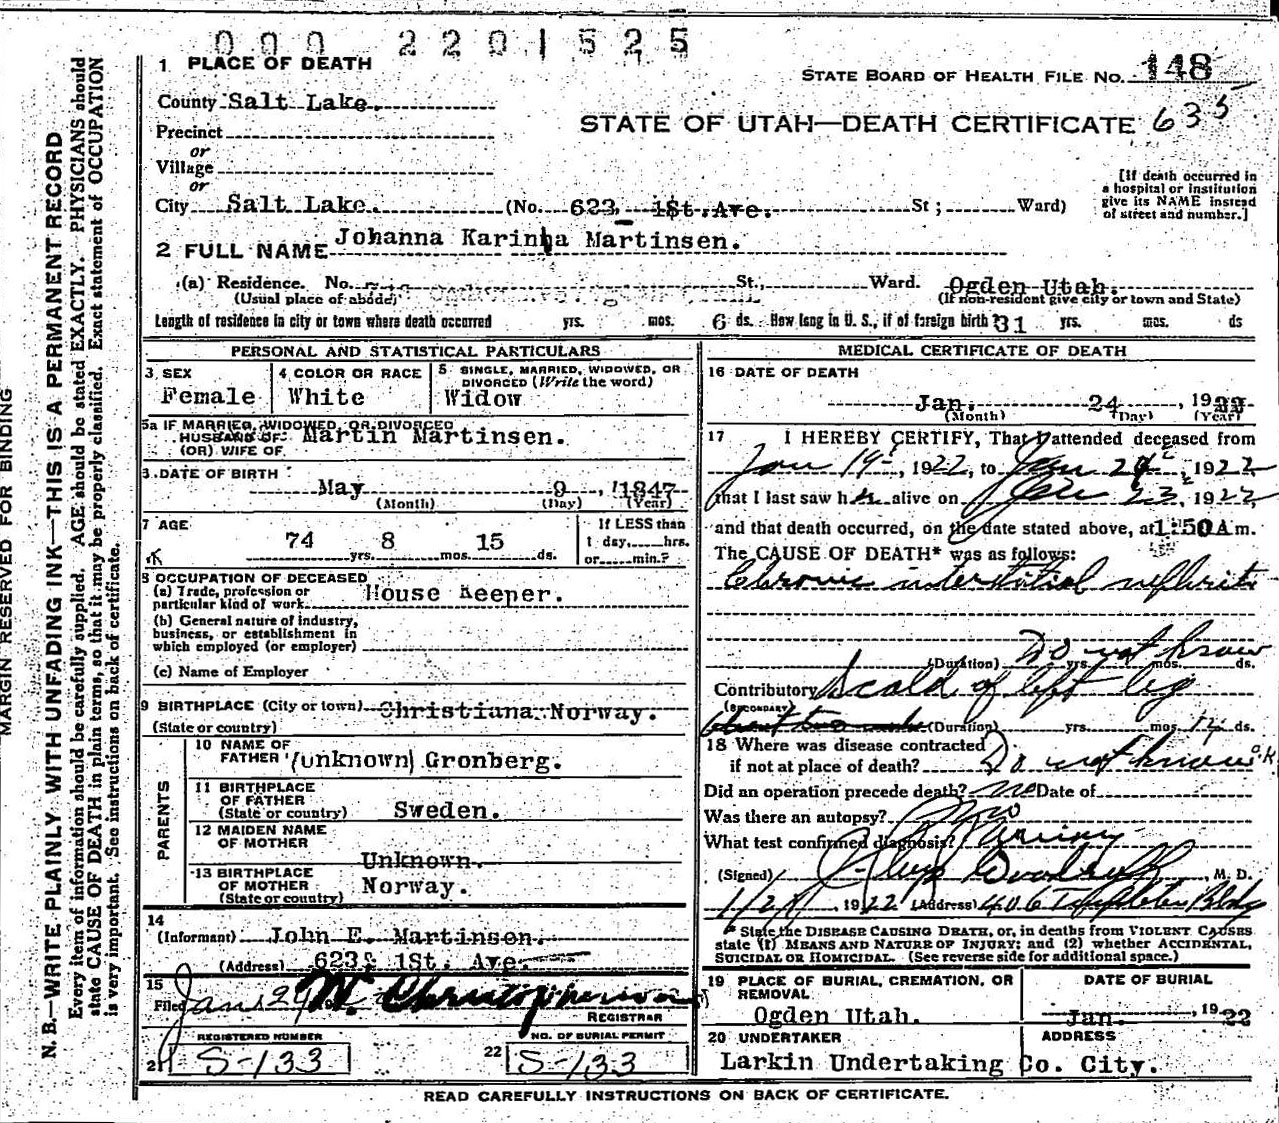 000 2201525
1 PLACE OF DEATH
STATE BOARD OF HEALTH FILE NO. 148
County Salt Lake.
STATE OF UTAH—DEATH CERTIFICATE 635
Precinct
or
Village
or
City Salt Lake. (No. 623 1St. Ave. St; Ward)
[If death occurred in
a hospital or institution
give its NAME instead
of street and number.]
2 FULL NAME Johanna Karinha Martinsen.
(a) Residence. No. St., Ward. Ogden Utah.
(Usual place of abode) (If non-resident give city or town and State)
Length of residence in city or town where death occurred yrs. mos. 6 ds. How long in U. S., if of foreign birth? 31 yrs. mos. ds
PERSONAL AND STATISTICAL PARTICULARS
3 SEX
Female
4 COLOR OR RACE
White
5 SINGLE, MARRIED, WIDOWED, OR
DIVORCED (Write the word)
Widow
5a IF MARRIED, WIDOWED, OR DIVORCED
HUSBAND OF
(OR) WIFE OF Martin Martinsen.
6 DATE OF BIRTH
May 9, 1847
(Month) (Day) (Year)
7 AGE
74 yrs. 8 mos. 15 ds.
If LESS than
1 day, hrs.
or min.?
8 OCCUPATION OF DECEASED
(a) Trade, profession or
particular kind of work House Keeper.
(b) General nature of industry,
business, or establishment in
which employed (or employer)
(c) Name of Employer
9 BIRTHPLACE (City or town) Christiana Norway.
(State or country)
PARENTS
10 NAME OF
FATHER (unknown) Gronberg.
11 BIRTHPLACE
OF FATHER
(State or country) Sweden.
12 MAIDEN NAME
OF MOTHER
Unknown.
13 BIRTHPLACE
OF MOTHER
(State or country) Norway.
14
(Informant) John E. Martinsen.
(Address) 623 1St. Ave.
15
Filed Jan 24 W. Christopherson
REGISTRAR
REGISTERED NUMBER
21 S-133
NO. OF BURIAL PERMIT
22 S-133
MEDICAL CERTIFICATE OF DEATH
16 DATE OF DEATH
Jan. 24, 1922
(Month) (Day) (Year)
17 I HEREBY CERTIFY, That I attended deceased from
Jan 19, 1922, to Jan 24, 1922
that I last saw her alive on Jan 23, 1922,
and that death occurred, on the date stated above, at 1:50 A m.
The CAUSE OF DEATH* was as follows:
Chronic interstitial nephritis
(Duration) Do not know yrs. mos. ds.
Contributory Scald of left leg
(SECONDARY)
(Duration) yrs. mos. 14 ds.
18 Where was disease contracted
if not at place of death? Do not know O.K.
Did an operation precede death? no Date of
Was there an autopsy? No
What test confirmed diagnosis? Urinary
(Signed) Woodruff, M. D.
1/24, 1922 (Address) 406 Templeton Bldg
* State the DISEASE CAUSING DEATH, or, in deaths from VIOLENT CAUSES
state (1) MEANS AND NATURE OF INJURY; and (2) whether ACCIDENTAL,
SUICIDAL OR HOMICIDAL. (See reverse side for additional space.)
19 PLACE OF BURIAL, CREMATION, OR
REMOVAL
Ogden Utah.
DATE OF BURIAL
Jan. , 1922
20 UNDERTAKER
ADDRESS
Larkin Undertaking Co. City.
READ CAREFULLY INSTRUCTIONS ON BACK OF CERTIFICATE.
MARGIN RESERVED FOR BINDING
N. B.—WRITE PLAINLY WITH UNFADING INK—THIS IS A PERMANENT RECORD
Every item of information should be carefully supplied. AGE should be stated EXACTLY. PHYSICIANS should
state CAUSE OF DEATH in plain terms, so that it may be properly classified. Exact statement of OCCUPATION
is very important. See instructions on back of certificate.